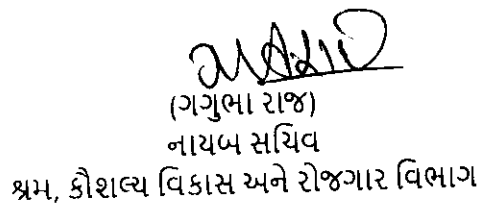 (ગગુભા રાજ)
નાયબ સચિવ
શ્રમ, કૌશલ્ય વિકાસ અને રોજગાર વિભાગ